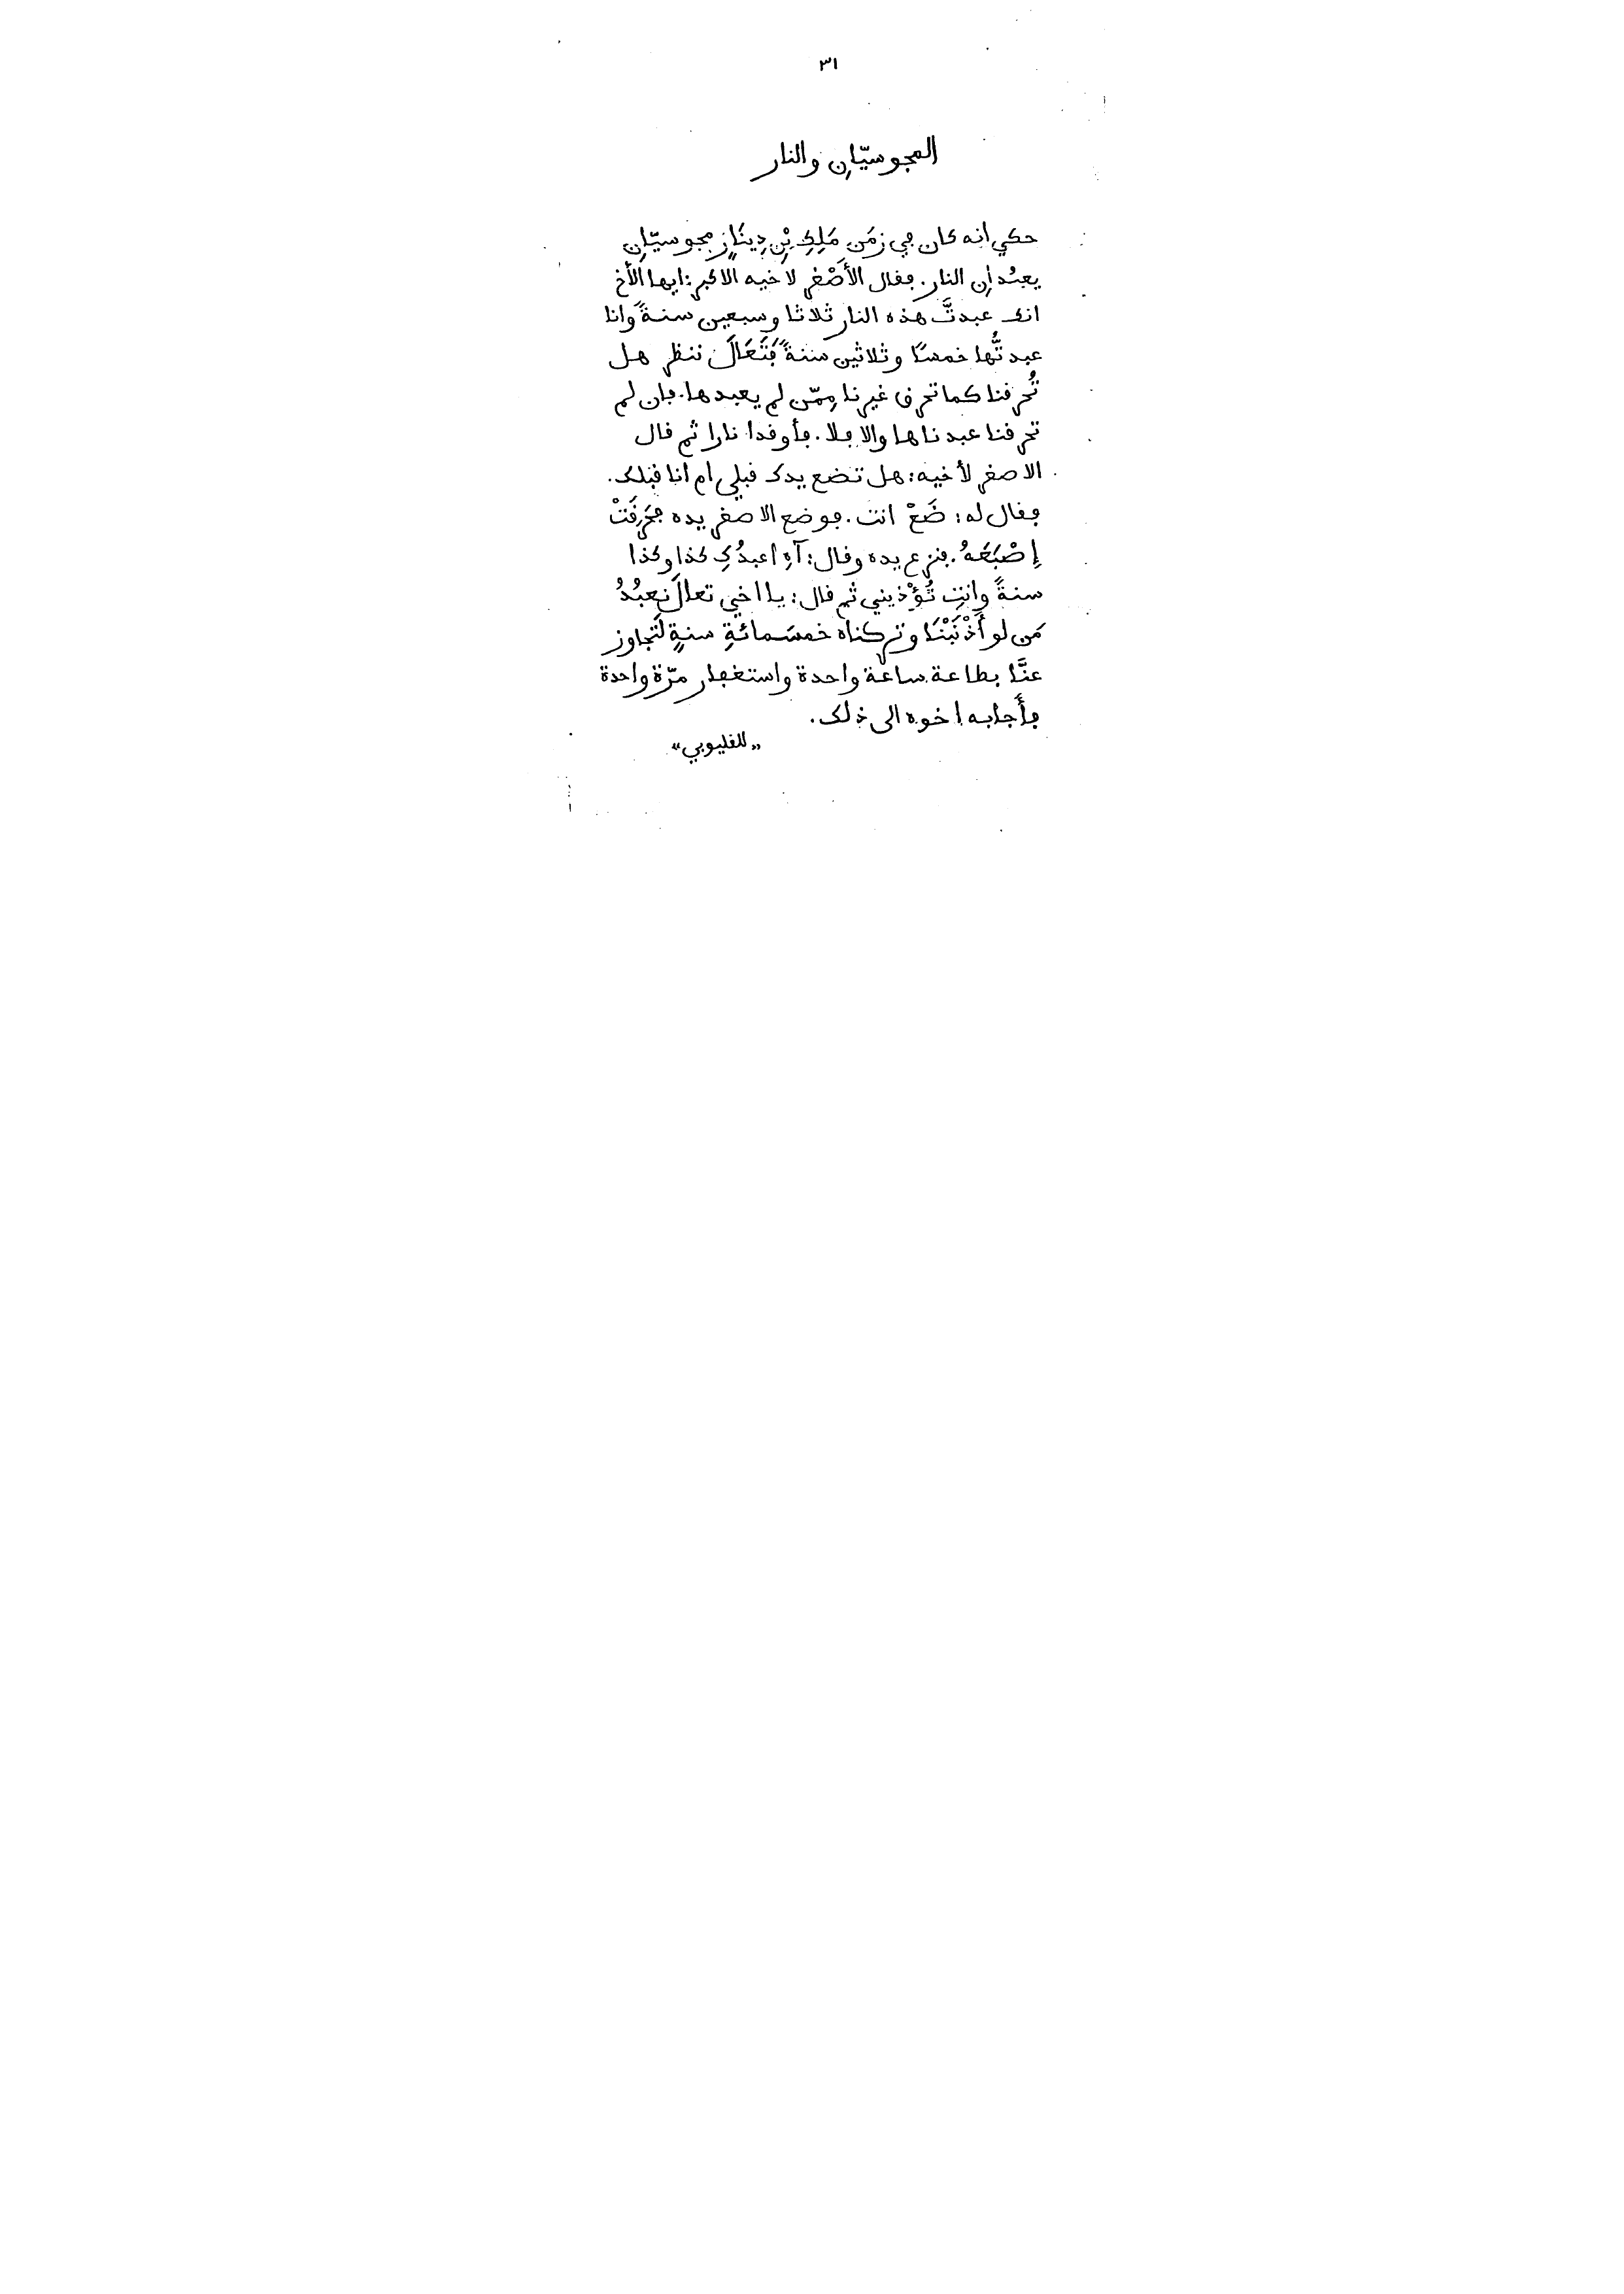 ٣١
المجوسيّانِ والنار
حكي انه كان في زمَن مَلِكِ بْنِ دِينَارٍ مجوسيّانِ
يعبُدانِ النار. فقال الأَصْغر لاخيه الاكبر: ايها الأَخ
انك عبدتَّ هذه النار ثلاثا وسبعين سنةً وانا
عبدتُّها خمسًا وثلاثين سنةً فَتَعَالَ ننظر هل
تُحرقنا كما تحرق غيرنا مِمّن لم يعبدها. فان لم
تحرقنا عبدناها والا فلا. فأوقدا نارا ثم قال
الاصغر لأخيه: هل تضع يدك قبلي ام انا قبْلك.
فقال له: ضَعْ انت. فوضع الاصغر يده فحَرَقَتْ
إِصْبَعَهُ. فنزع يده وقال: آهِ اعبدُكِ كذا وكذا
سنةً وانتِ تُؤْذيني ثم قال: يا اخي تعالَ نعبُدُ
مَن لو أَذْنَبْنَا وتركناه خمسَمائةِ سنةٍ لَتجاوز
عنَّا بطاعة ساعة واحدة واستغفار مرّة واحدة
فأَجابه اخوه الى ذلك.
„للقليوبي“